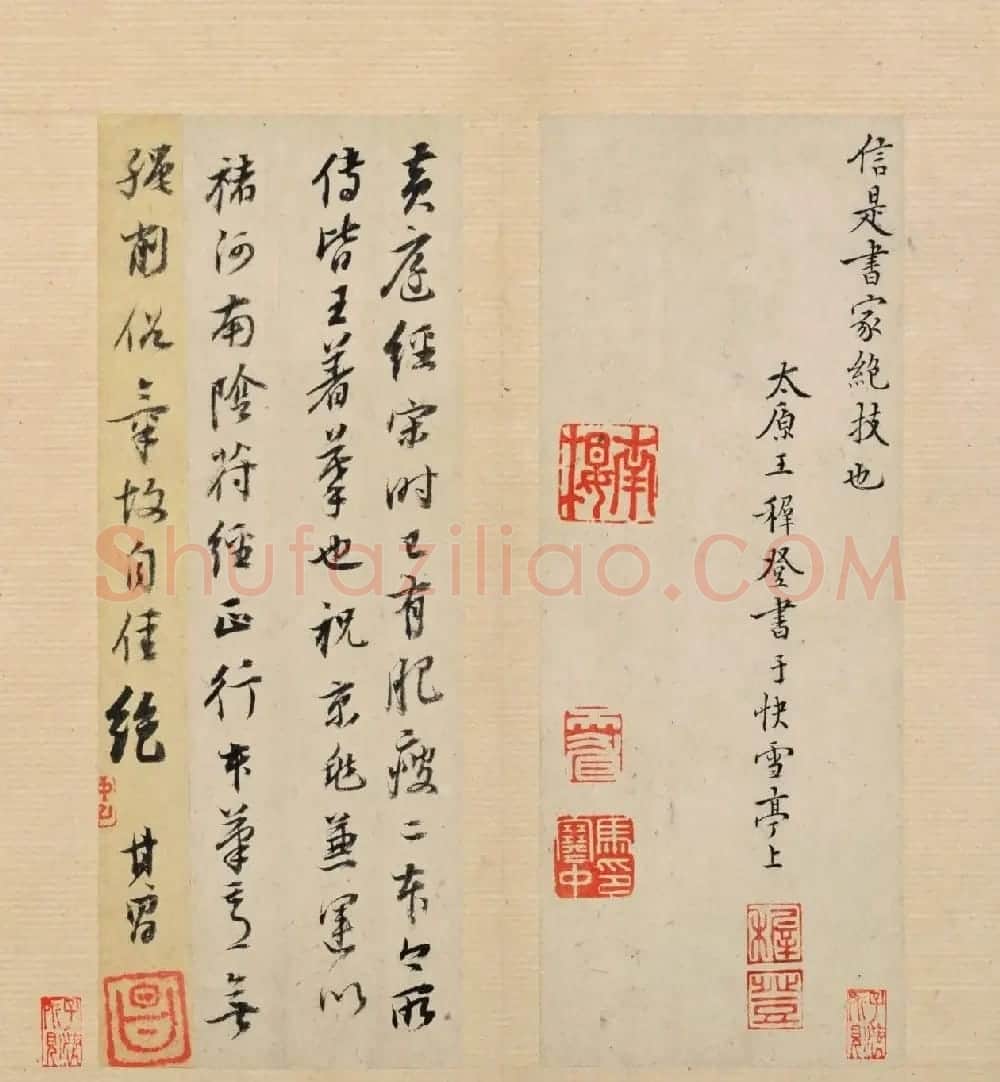 信是書家絕技也
太原王穉登書于快雪亭上
黃庭經宋時已有肥瘦二本今所
傳皆王著摹也祝京兆兼運以
褚河南陰符經正行本筆意無
俗筆故自佳絕
其昌
穉登
昌
Shufaziliao.COM